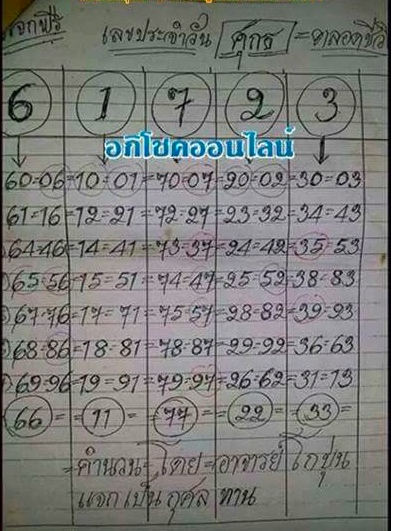 แจกฟรี
เลขประจำวัน ศุกร์ = ตลอดชีวิ
6 1 7 2 3
อภิโชคออนไลน์
60=06=10=01=70=07=20=02=30=03
61=16=12=21=72=27=23=32=34=43
64=46=14=41=73=37=24=42=35=53
65=56=15=51=74=47=25=52=38=83
67=76=17=71=75=57=28=82=39=93
68=86=18=81=78=87=29=92=36=63
69=96=19=91=79=97=26=62=31=13
66= =11= =77= =22= =33=
=คำนวน=โดย=อาจารย์ โกปุน
แจกเป็นกุศลทาน